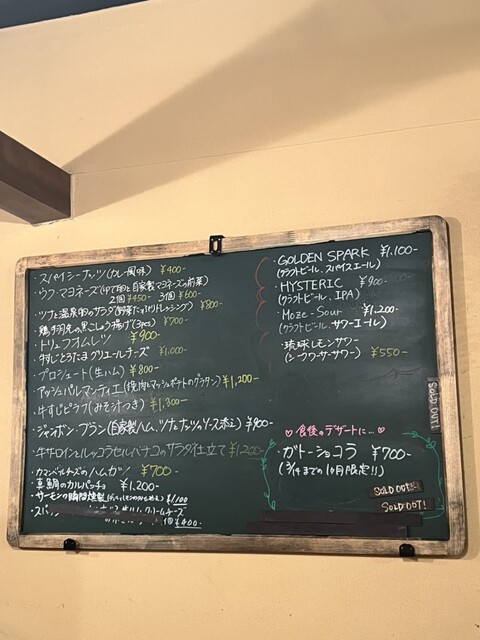 ・スパイシーナッツ(カレー風味) ¥400-
・ウフ・マヨネーズ(ゆで卵と自家製マヨネーズの前菜)
2個¥450- 3個¥600-
・ツナと温泉卵のサラダ ¥800-
・鶏手羽先の黒こしょう揚げ(3pcs) ¥700-
・トリュフオムレツ ¥900-
・牛すじとうたまグリエールチーズ ¥1,000-
・プロシュート(生ハム) ¥800-
・アッシェパルマンティエ(挽肉とマッシュポテトのグラタン) ¥1,200-
・牛すじピラフ(みそ汁つき) ¥1,300-
・ジャンボン・ブラン(自家製ハム、ツナとナッツのソース添え) ¥900-
・牛サロインとルッコラセルバチコのサラダ仕立て ¥1,200-
・カマンベールチーズのハムカツ ¥700-
・真鯛のカルパッチョ ¥1,200-
・サーモンの瞬間燻製 ¥1,100
・スパ クリームチーズ
個¥400-
・GOLDEN SPARK ¥1,100-
(クラフトビール、スパイスエール)
・HYSTERIC ¥900-
(クラフトビール、IPA)
・Moze-Sour ¥1,200-
(クラフトビール、サワーエール)
・琉球レモンサワー
(シークワーサーサワー) ¥550-
SOLD OUT!
♡ 食後のデザートに… ♡
・ガトーショコラ ¥700-
(3/14までの1ヶ月限定!!)
SOLD OUT!
SOLD OUT!